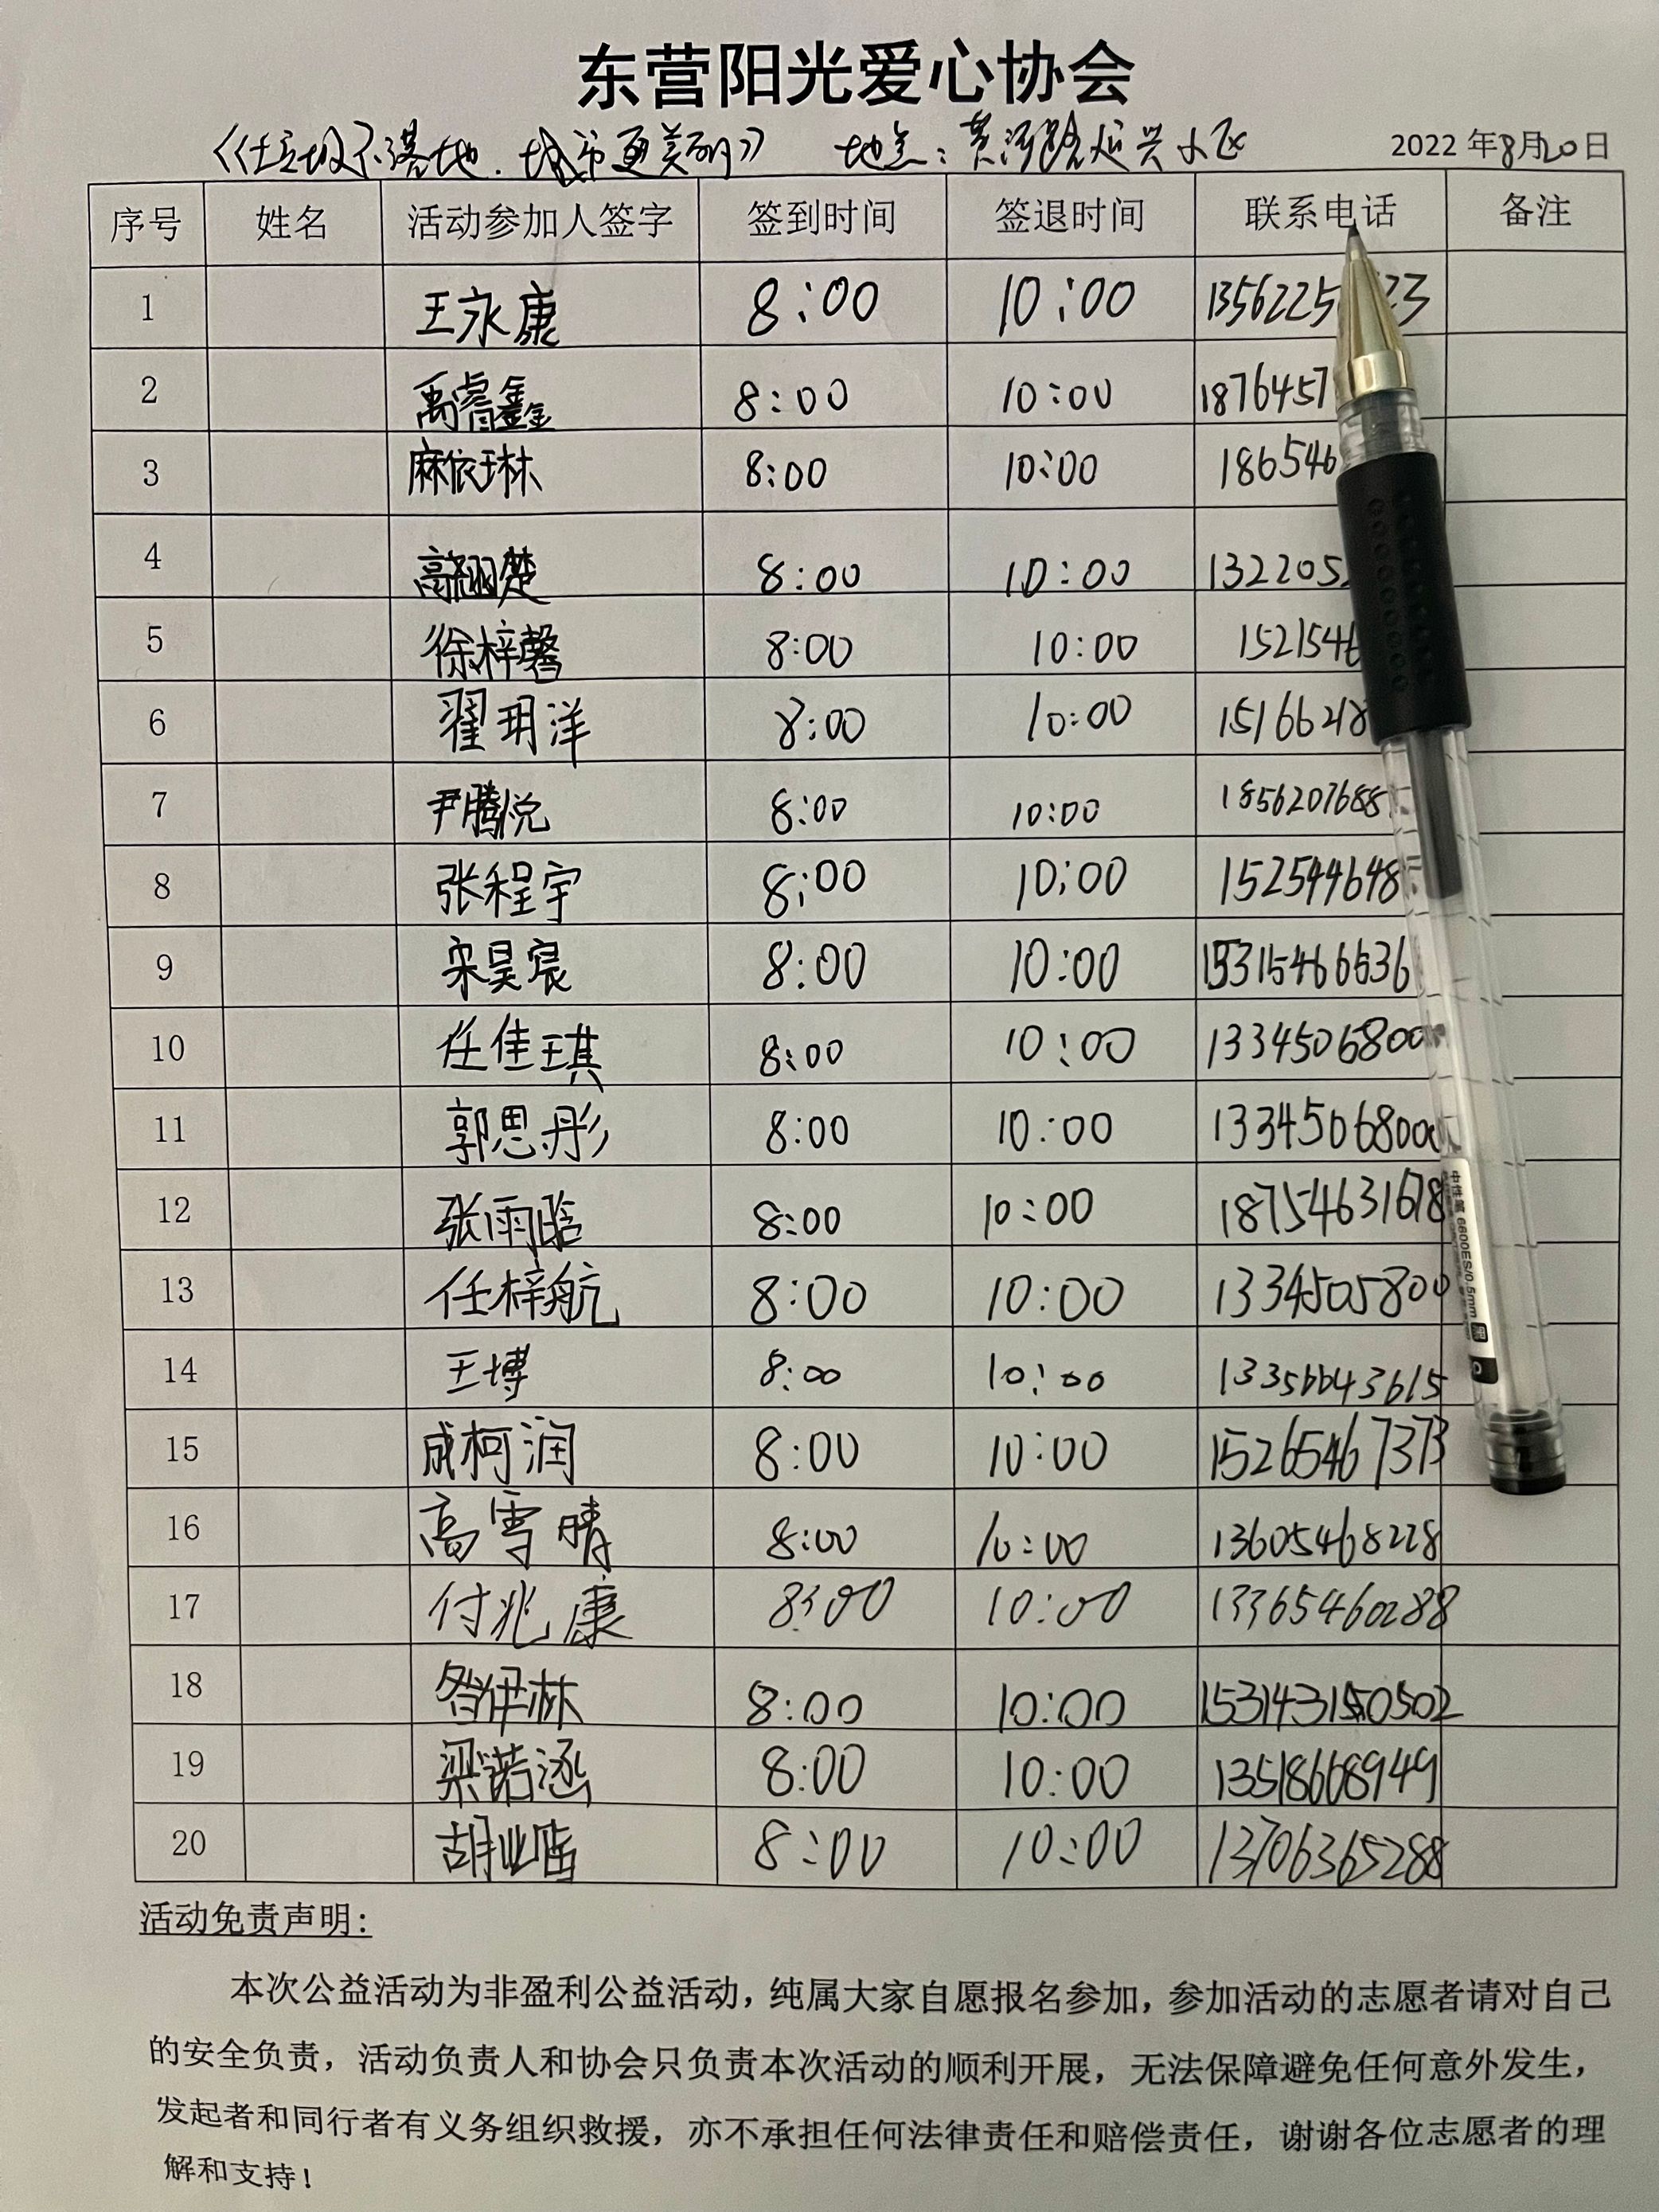 东营阳光爱心协会
《垃圾不落地.城市更美丽》 地点：黄河路运兴小区 2022年8月20日
序号 姓名 活动参加人签字 签到时间 签退时间 联系电话 备注
1 王永康 8:00 10:00 1356225 23
2 禹睿鑫 8:00 10:00 1876457
3 麻依琳 8:00 10:00 186546
4 高翊楚 8:00 10:00 1322052
5 徐梓馨 8:00 10:00 1521546
6 翟玥洋 8:00 10:00 15166218
7 尹腾悦 8:00 10:00 1856207688
8 张程宇 8:00 10:00 152544648
9 宋昊宸 8:00 10:00 15315466636
10 任佳琪 8:00 10:00 1334506800
11 郭思彤 8:00 10:00 1334506800
12 张雨晗 8:00 10:00 18754631678
13 任梓航 8:00 10:00 1334505800
14 王博 8:00 10:00 13356643615
15 成柯润 8:00 10:00 15265467373
16 高雪晴 8:00 10:00 13605468228
17 付兆康 8:00 10:00 13365460288
18 昝伊林 8:00 10:00
19 梁诺涵 8:00 10:00 13518668949
20 8:00 10:00 13706365288
中性笔 6600ES/0.5mm 黑
活动免责声明：
本次公益活动为非盈利公益活动，纯属大家自愿报名参加，参加活动的志愿者请对自己
的安全负责，活动负责人和协会只负责本次活动的顺利开展，无法保障避免任何意外发生，
发起者和同行者有义务组织救援，亦不承担任何法律责任和赔偿责任，谢谢各位志愿者的理
解和支持！